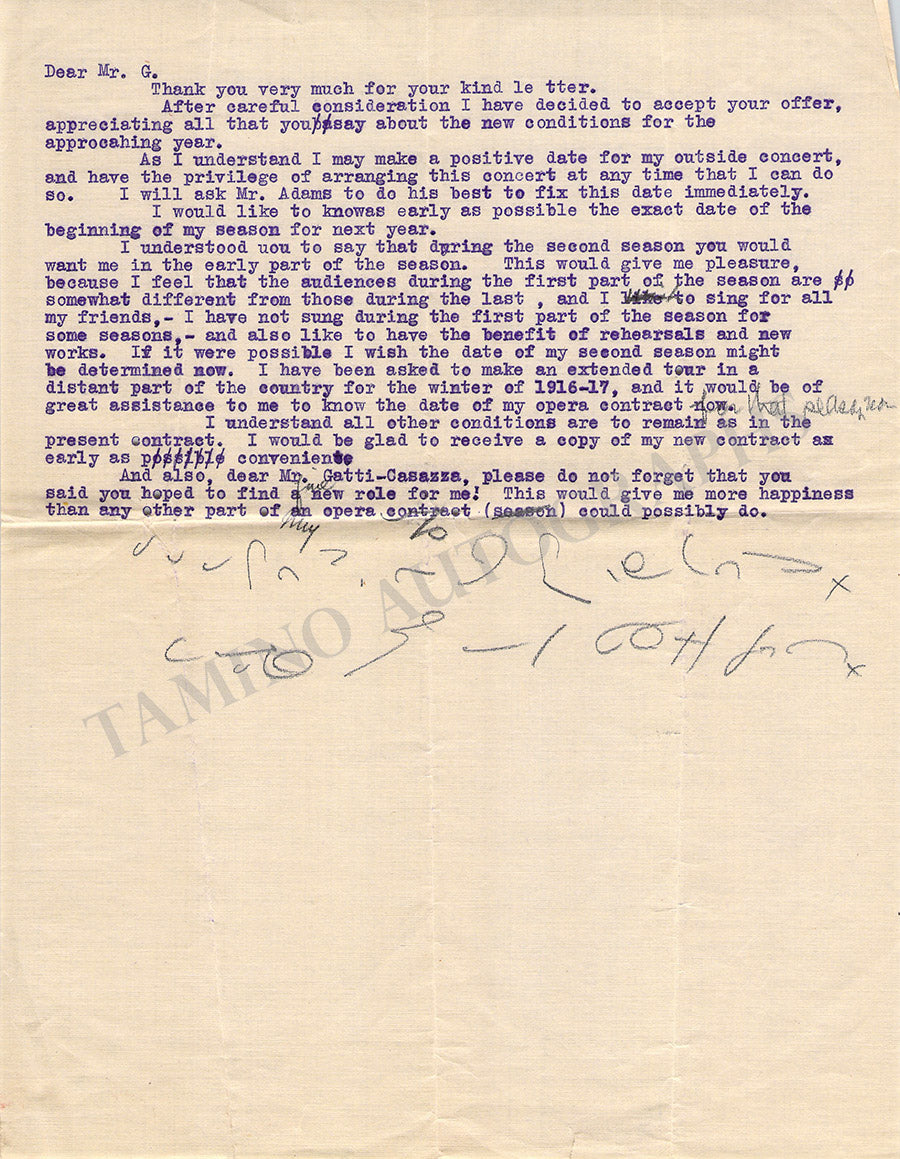 Dear Mr. G.
Thank you very much for your kind le tter.
After careful consideration I have decided to accept your offer,
appreciating all that you say about the new conditions for the
approcahing year.
As I understand I may make a positive date for my outside concert,
and have the privilege of arranging this concert at any time that I can do
so. I will ask Mr. Adams to do his best to fix this date immediately.
I would like to knowas early as possible the exact date of the
beginning of my season for next year.
I understood uou to say that during the second season you would
want me in the early part of the season. This would give me pleasure,
because I feel that the audiences during the first part of the season are
somewhat different from those during the last , and I to sing for all
my friends,- I have not sung during the first part of the season for
some seasons,- and also like to have the benefit of rehearsals and new
works. If it were possible I wish the date of my second season might
be determined now. I have been asked to make an extended tour in a
distant part of the country for the winter of 1916-17, and it would be of
great assistance to me to know the date of my opera contract now. for that season
I understand all other conditions are to remain as in the
present contract. I would be glad to receive a copy of my new contract as
early as possible convenient
And also, dear Mr. Gatti-Casazza, please do not forget that you
said you hoped to find a fine new role for me! This would give me more happiness
than any other part of an my opera contract (season) could possibly do.
to
TAMINO AUTOGRAPHS